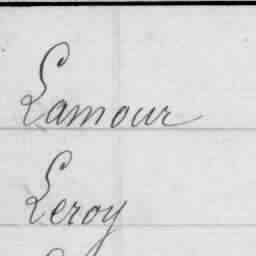 Lamour
Leroy